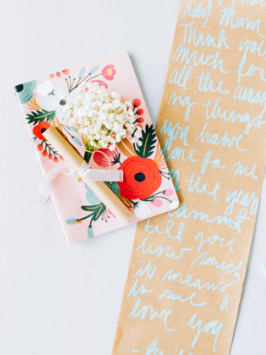 Hey Mom
Thank you
much for
all the amaz
ing things
you have
done for me
in the years
I cannot
tell you
how much
it means
to me
love you